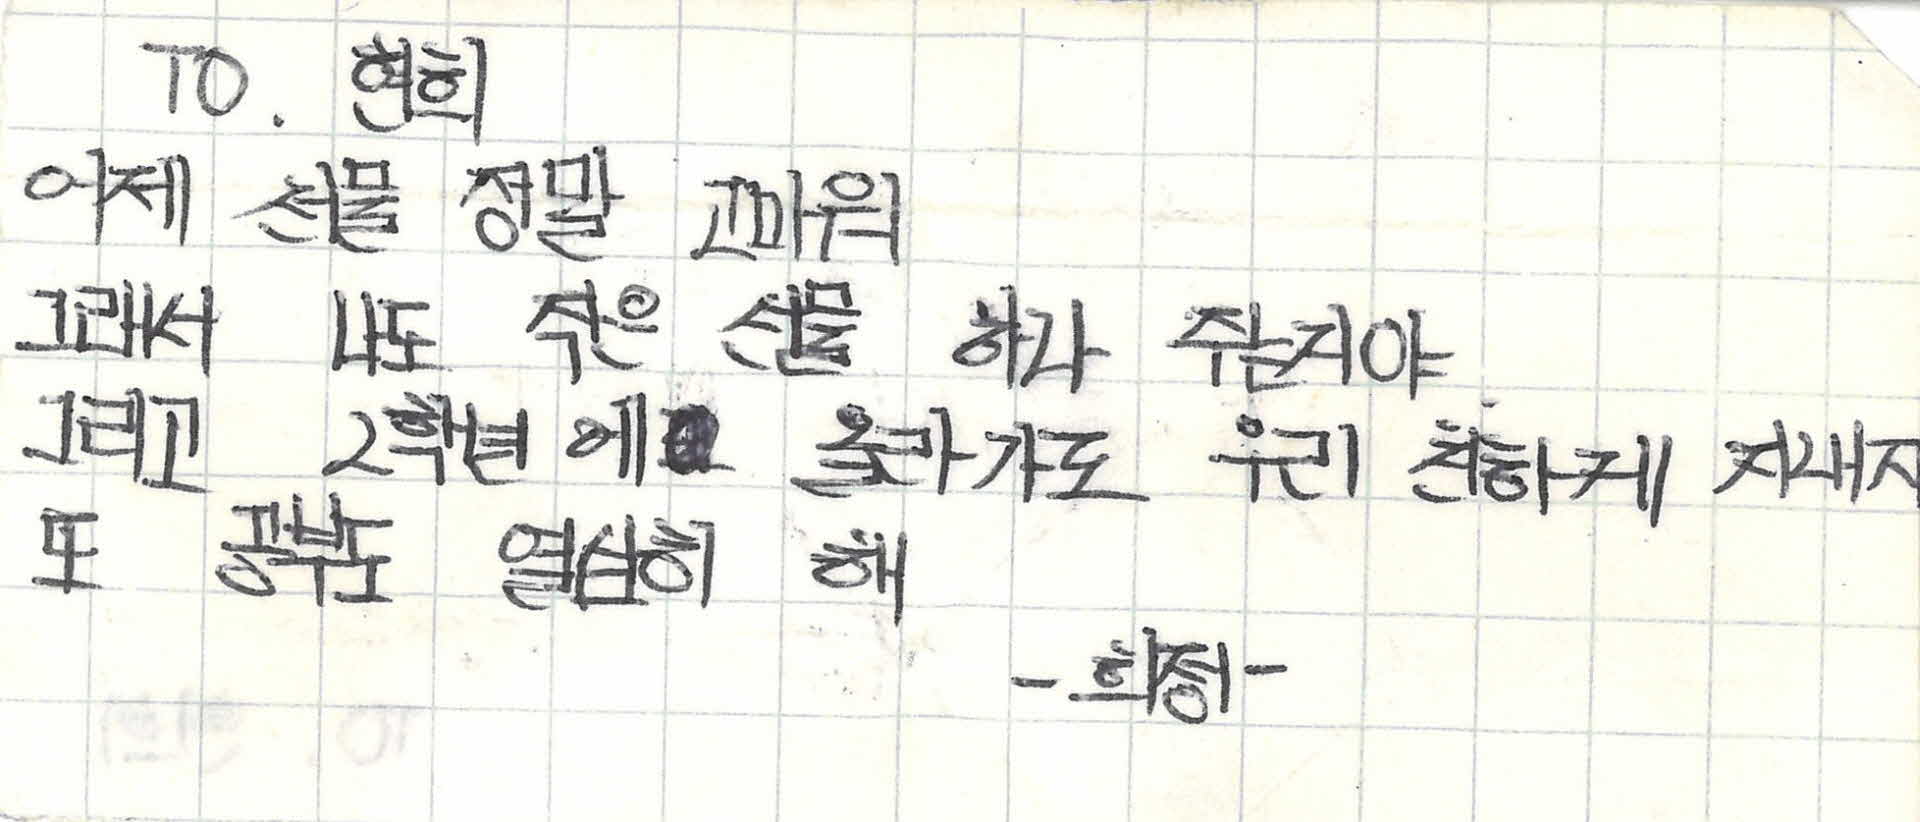 TO. 현희
어제 선물 정말 고마워
그래서 나도 작은 선물 하나 주는거야
그리고 2학년에 올라가도 우리 친하게 지내자
또 공부도 열심히 해
- 희정 -